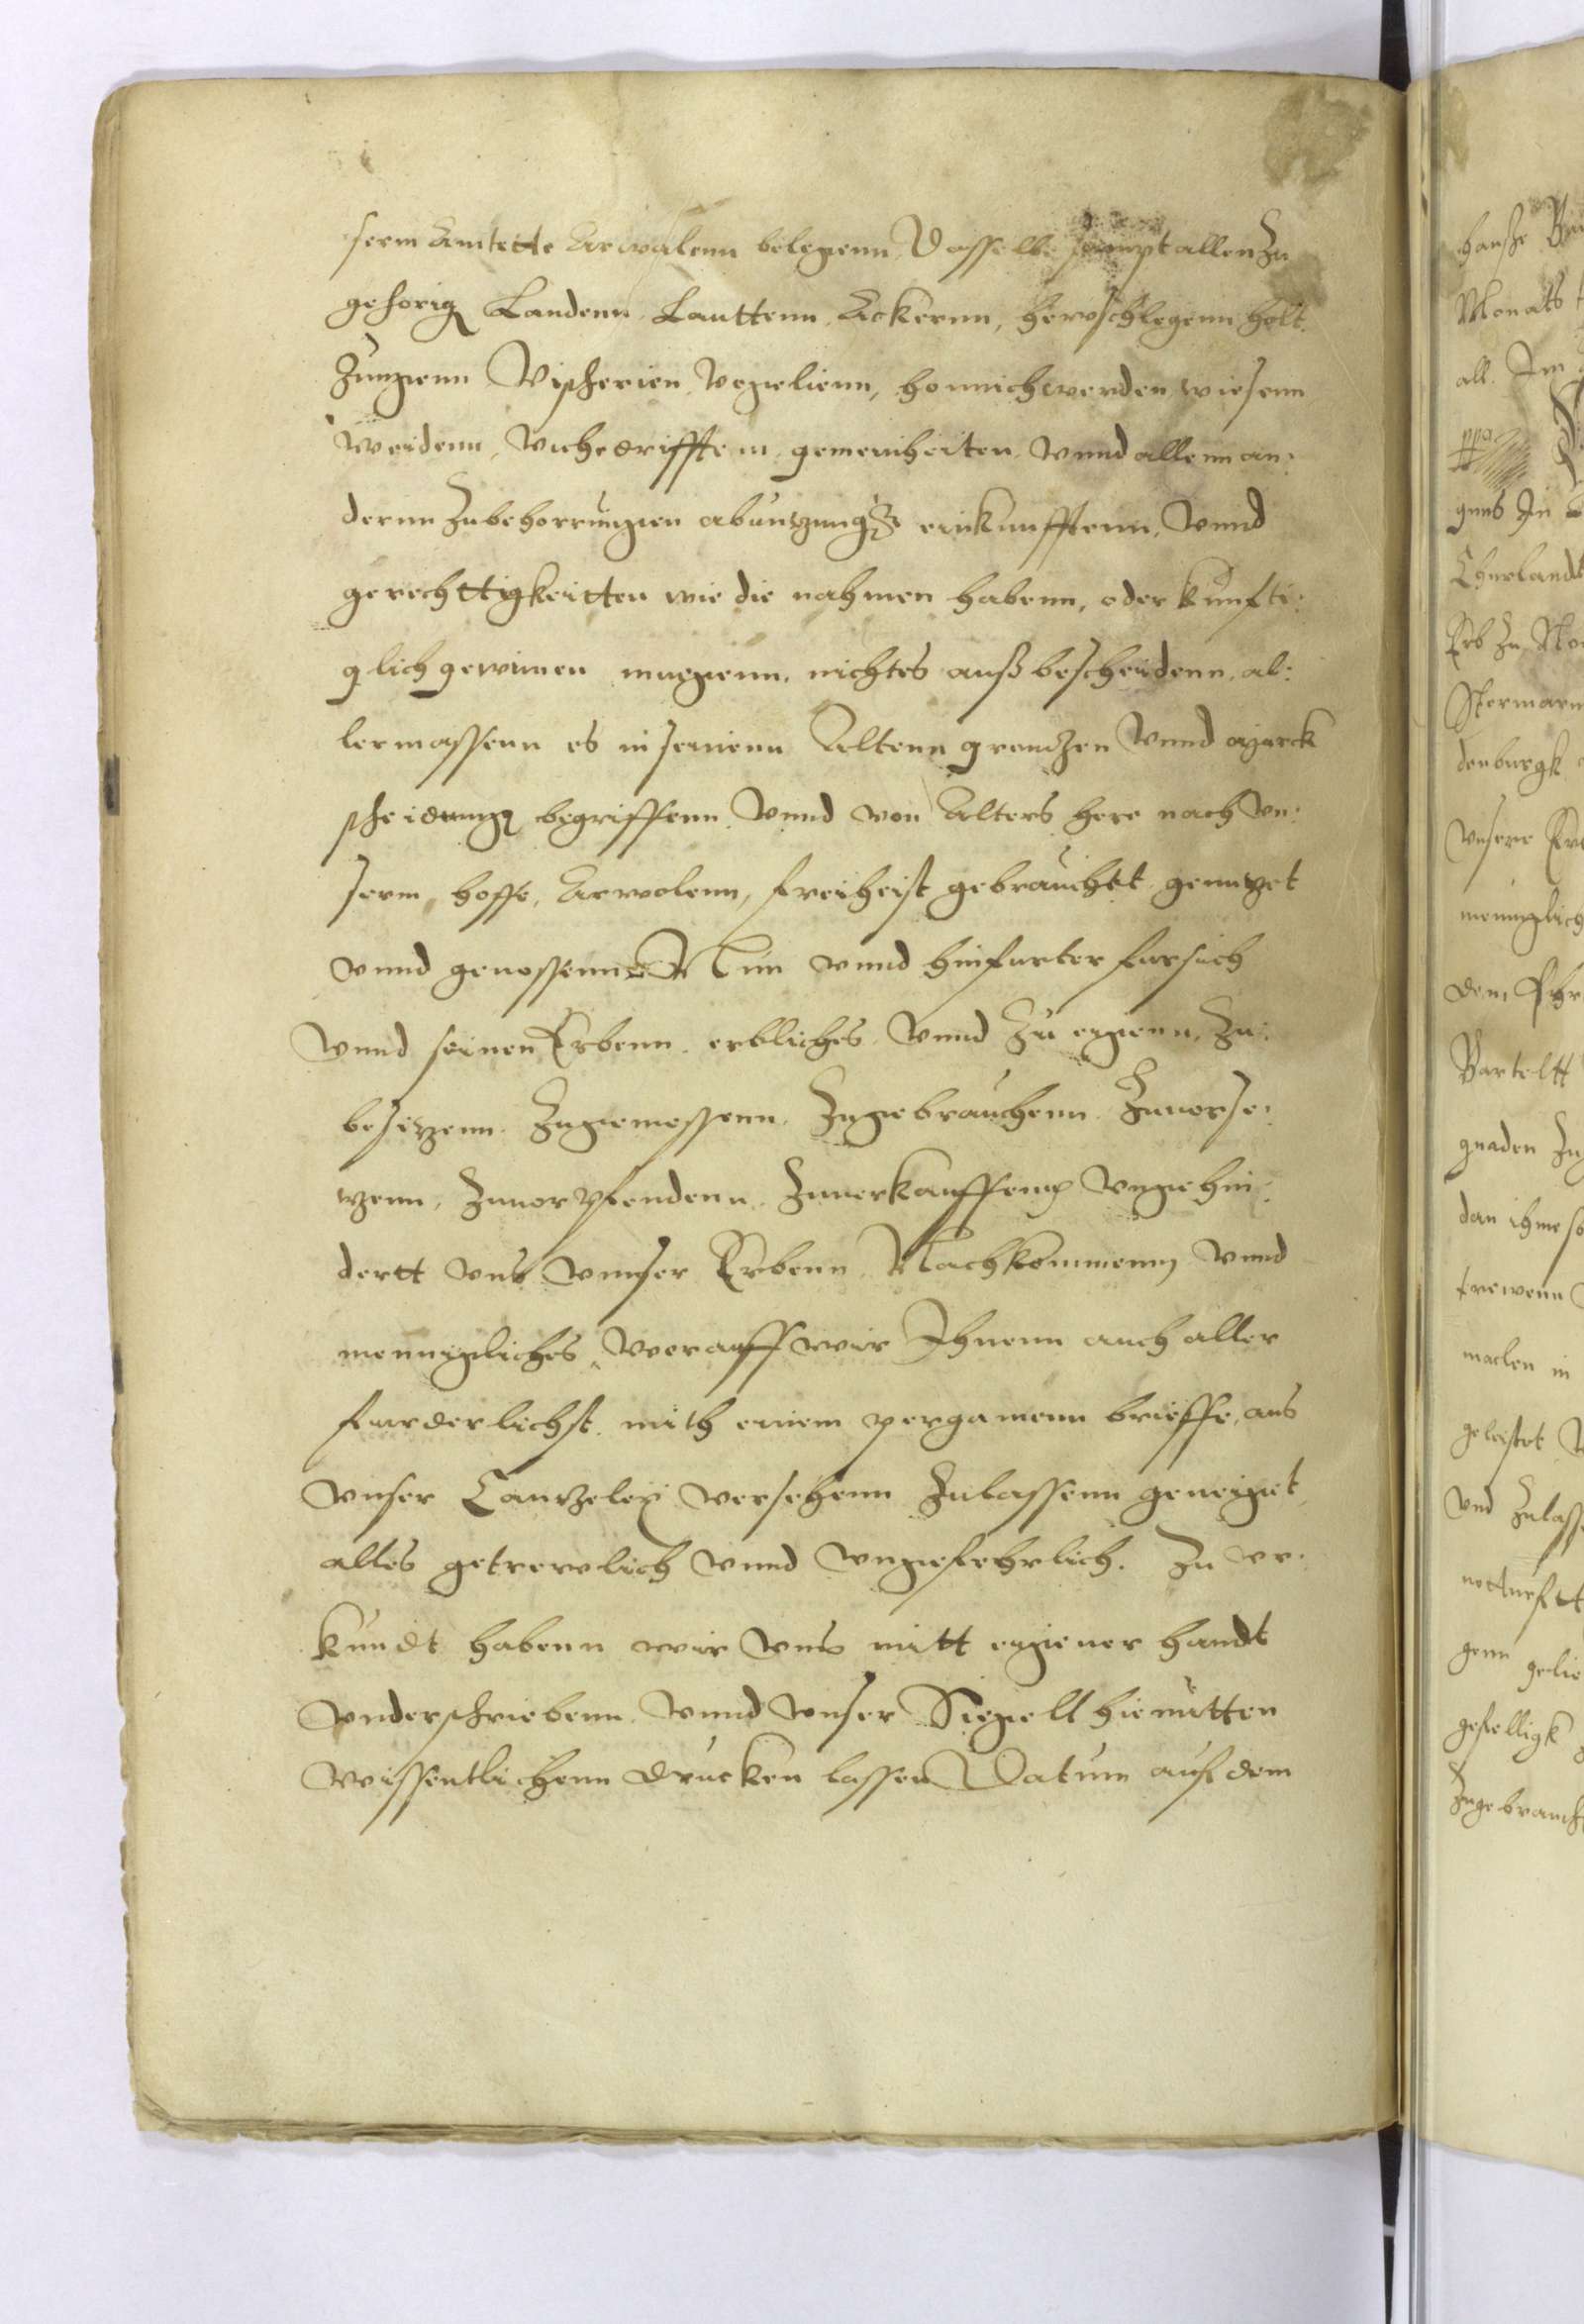 serm Amtette Arwalenn belegenn, Dasselbe sampt allen Zu
gehorig Landenn Lauttenn, Ackernn, Hewschlegenn Holt:
Zungenn Vischerien, Vogelienn, honnichweyden wiesenn
weidenn, viehedrifftenn, gemeinheiten vnnd allenn an:
dernn Zubehorrungen abnutzung einkunfftenn, vnnd
gerechttigkeitten wie die nahmen habenn, oder kunfti:
glich gewinnen muegenn, nichtes außbescheidenn, al:
lermassenn es in seinenn Altenn grentzen vnnd
scheidung begriffenn, vnnd von Alters here nach vn:
serm, hoffe, Arwolenn, freiheist gebrauchtt genutzet
vnnd genossenn Nun vnnd hinfurter fur sich
vnnd seinen Erbenn, erbliches vnnd Zu eigenn, Zu:
besitzenn, Zugeniessenn, Zugebrauchenn, Zuuerse:
tzenn, Zuuorpfendenn, Zuuerkauffenn vngehin:
dertt vns vnnser Erbenn, Nachkommenn vnnd
mennigliches, Worauff wir Ihnenn auch aller
furderlichst mith einem pergamenn brieffe, aus
vnser Cantzeley versehenn Zulassenn geneiget,
alles getrewlich vnnd vngefehrlich. Zu vr:
kundt habenn wir vns mitt eigener handt
vnderschriebenn, vnnd vnser Siegell hienitten
wissentlichenn drucken lassen Datum auf dem
hanße
Monats
all. Im
guns In
Churlandt
Erb Zu
Stormarn
denburgk
vnsere
menniglich
dem
Barteltt
gnaden Zu
dan ihme so
trewenn
malen in
geleistet
vnd Zulasse
notturftt
genn gelie
gefelligk
Zugebrauch